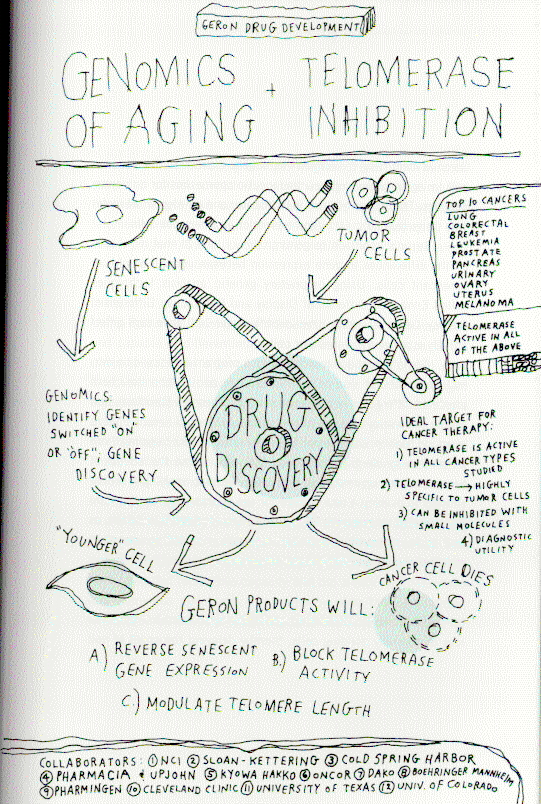 GERON DRUG DEVELOPMENT
GENOMICS + TELOMERASE
OF AGING INHIBITION
SENESCENT
CELLS
TUMOR
CELLS
TOP 10 CANCERS
LUNG
COLORECTAL
BREAST
LEUKEMIA
PROSTATE
PANCREAS
URINARY
OVARY
UTERUS
MELANOMA
TELOMERASE
ACTIVE IN ALL
OF THE ABOVE
GENOMICS:
IDENTIFY GENES
SWITCHED "ON"
OR "OFF", GENE
DISCOVERY
DRUG
DISCOVERY
IDEAL TARGET FOR
CANCER THERAPY:
1) TELOMERASE IS ACTIVE
IN ALL CANCER TYPES
STUDIED
2) TELOMERASE → HIGHLY
SPECIFIC TO TUMOR CELLS
3) CAN BE INHIBITED WITH
SMALL MOLECULES
4) DIAGNOSTIC
UTILITY
"YOUNGER" CELL
CANCER CELL DIES
GERON PRODUCTS WILL:
A.) REVERSE SENESCENT
GENE EXPRESSION
B.) BLOCK TELOMERASE
ACTIVITY
C.) MODULATE TELOMERE LENGTH
COLLABORATORS: ① NCI ② SLOAN-KETTERING ③ COLD SPRING HARBOR
④ PHARMACIA & UPJOHN ⑤ KYOWA HAKKO ⑥ ONCOR ⑦ DAKO ⑧ BOEHRINGER MANNHEIM
⑨ PHARMINGEN ⑩ CLEVELAND CLINIC ⑪ UNIVERSITY OF TEXAS ⑫ UNIV. OF COLORADO